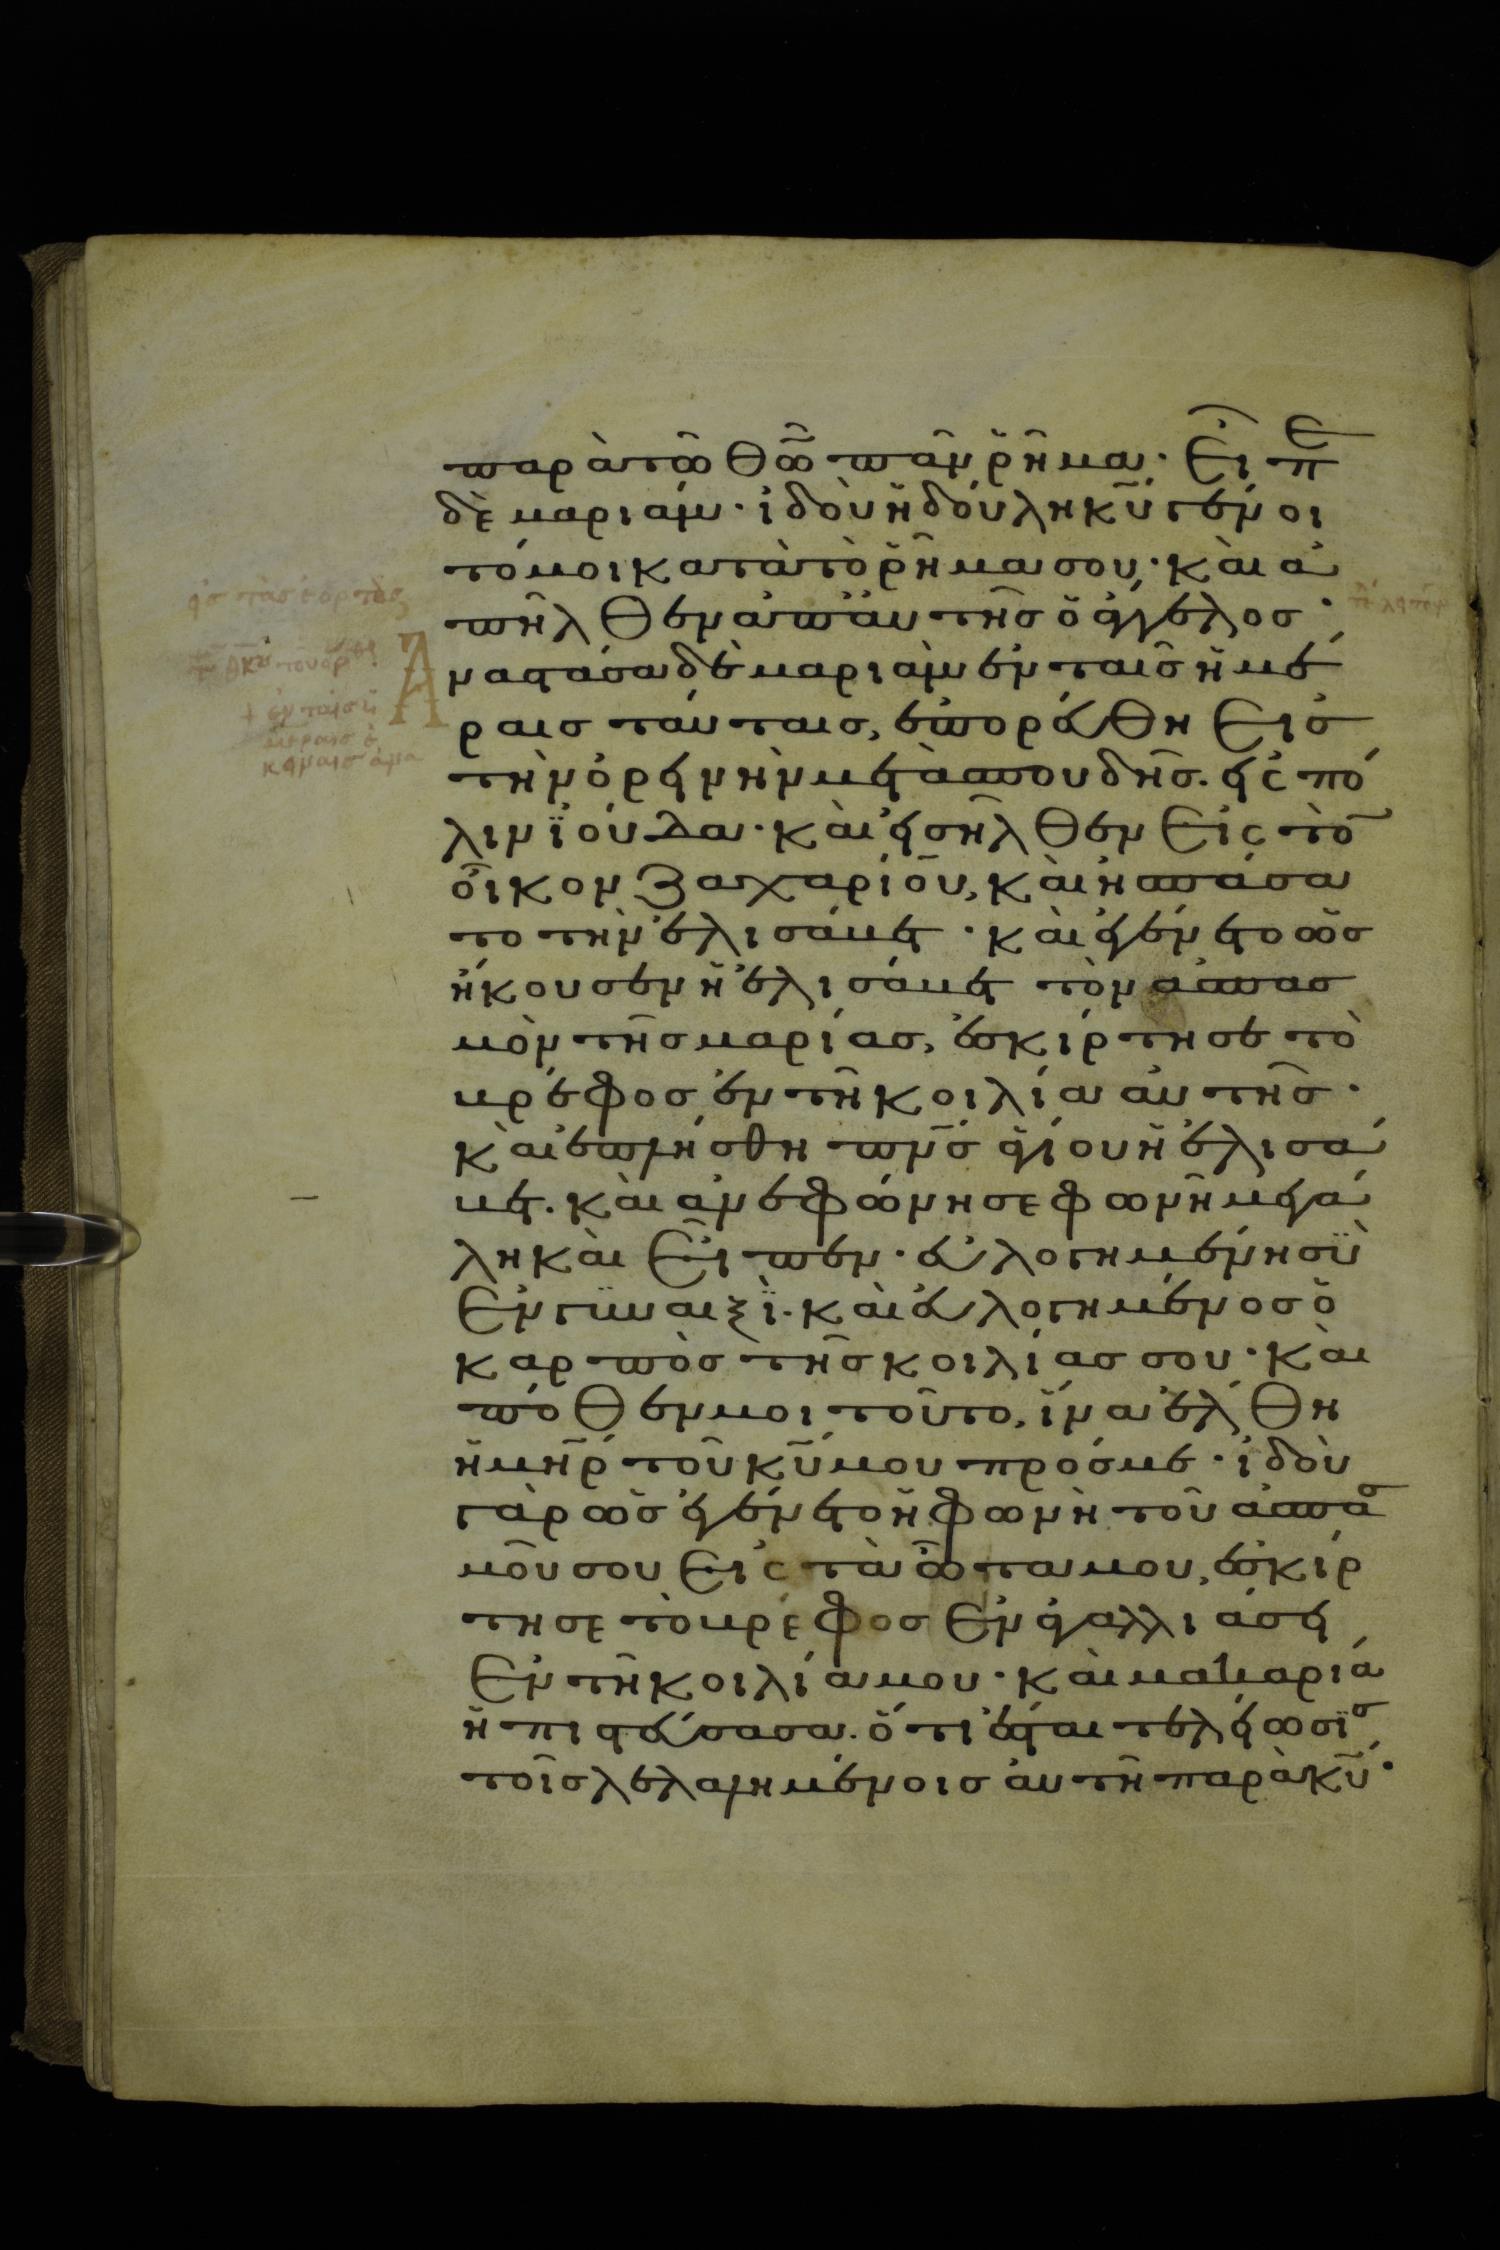 παρὰ τῶ θῶ πᾶν ῥῆμα· εἶπε
δὲ μαριάμ· ἰδοὺ ἡ δούλη κυ γένοι
το μοι κατὰ τὸ ῥῆμα σου· καὶ ἀ
πῆλθεν ἀπ' αὐτῆς ὁ ἄγγελος·
Ἀναστᾶσα δὲ μαριὰμ ἐν ταῖς ἡμέ
ραις ταύταις, ἐπορεύθη εἰς
τὴν ὀρεινὴν μετὰ σπουδῆς. εἰς πό
λιν ἰούδα· καὶ εἰσῆλθεν εἰς τὸ
οἶκον Ζαχαρίου, καὶ ἠσπάσα
το τὴν ἐλισάβετ· καὶ ἐγένετο ὡς
ἤκουσεν ἡ ἐλισάβετ τὸν ἀσπασ
μὸν τῆς μαρίας, ἐσκίρτησε τὸ
βρέφος ἐν τῆ κοιλία αὐτῆς·
καὶ ἐπλήσθη πνς ἁγίου ἡ ἐλισά
βετ. καὶ ἀνεφώνησε φωνῆ μεγά
λη καὶ εἶπεν· εὐλογημένη σὺ
ἐν γυναιξὶ. καὶ εὐλογημένος ὁ
καρπὸς τῆς κοιλίας σου· καὶ
πόθεν μοι τοῦτο, ἵνα ἔλθη
ἡ μηρ τοῦ κυ μου πρός με· ἰδοὺ
γὰρ ὡς ἐγένετο ἡ φωνὴ τοῦ ἀσπασ
μοῦ σου εἰς τὰ ὦτα μου, ἐσκίρ
τησε τὸ βρέφος ἐν ἀγαλλιάσει
ἐν τῆ κοιλία μου· καὶ μακαρία
ἡ πιστεύσασα. ὅτι ἔσται τελείωσις
τοῖς λελαλημένοις αὐτῆ παρὰ κυ·
εἰς τὰς ἑορτὰς
ἐν ταῖς ἡ
μέραις ἐ
κείναις ἀνα